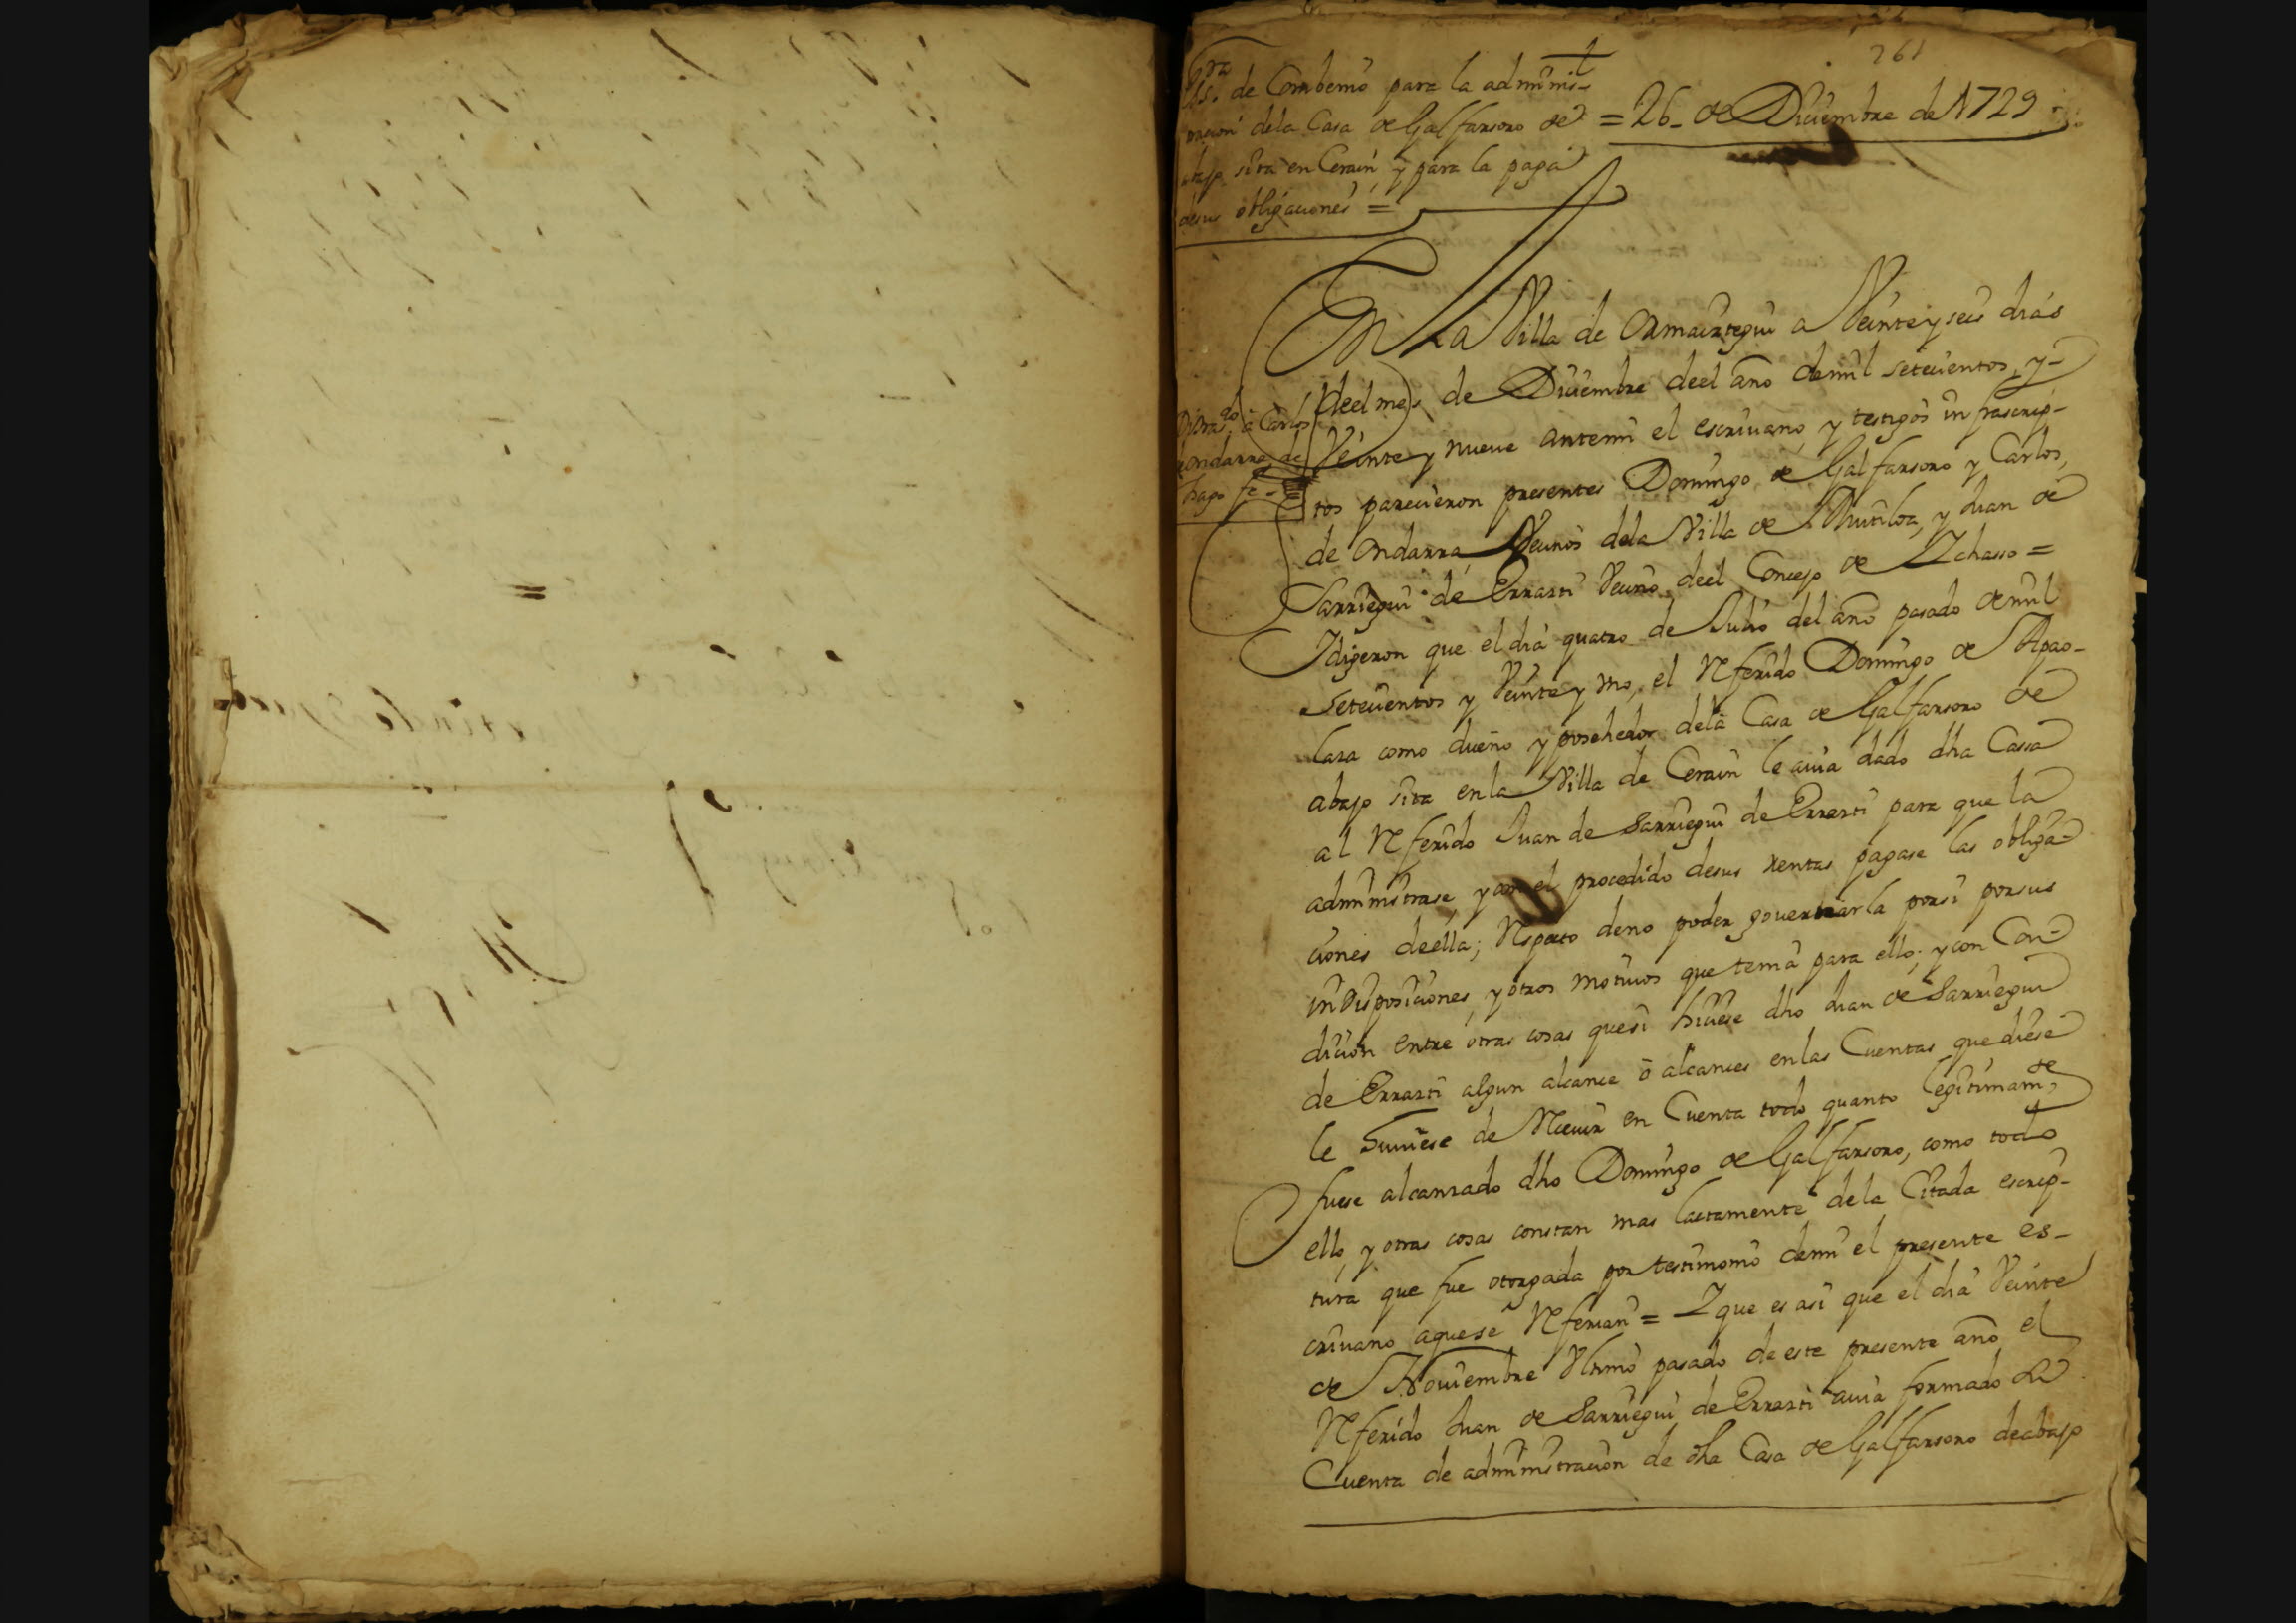 261
Ess.ra de Combenio para la adminis-
tracion dela Casa de Galfarsoro de
abajo sita en Cerain, y para la paga
desus obligaciones =
= 26_ de Diciembre de 1729
En La Villa de Ormaiztegui a Veinte y seis dias
deel mes de Diciembre deel año demil setecientos, y-
Veinte y nueve antemi el escriuano, y testigos infrascrip-
tos parecieron presentes Domingo de Galfarsoro y Carlos,
de Ondarra, Vecinos dela Villa de Mutiloa, y Juan de
Sarriegui de Errazti Vecino deel Concejo de Ychasso =
Ydigeron que el dia quatro de Julio del año pasado demil
setecientos y Veinte y vno, el Referido Domingo de Apao-
laza como dueño y posehedor dela Casa de Galfarsoro de
abajo sita enla Villa de Cerain le auia dado dha Cassa
al Referido Juan de Sarriegui de Errazti para que la
administrase, y con el procedido desus rentas pagase las obliga-
ciones deella; Respecto deno poder gouernarla porsi porsus
indisposiciones, y otros motiuos que tenia para ello; y con Con-
dicion entre otras cosas quesi hiciese dho Juan de Sarriegui
de Errazti algun alcance ò alcances enlas Cuentas que diese
le huuiese de Reciuir en Cuenta todo quanto legitimam.te
fuese alcanzado dho Domingo de Galfarsoro, como todo
ello, y otras cosas constan mas lactamente dela Citada escrip-
tura que fue otorgada por testimonio demi el presente es-
criuano aquese Referian = Yque es asi que el dia Veinte
de Nouiembre Vltimo pasado de este presente año, el
Referido Juan de Sarriegui de Errazti auia formado La
Cuenta de administracion de dha Casa de Galfarsoro deabajo
Di tra.do à Carlos
de Ondarra, de
hago fe =